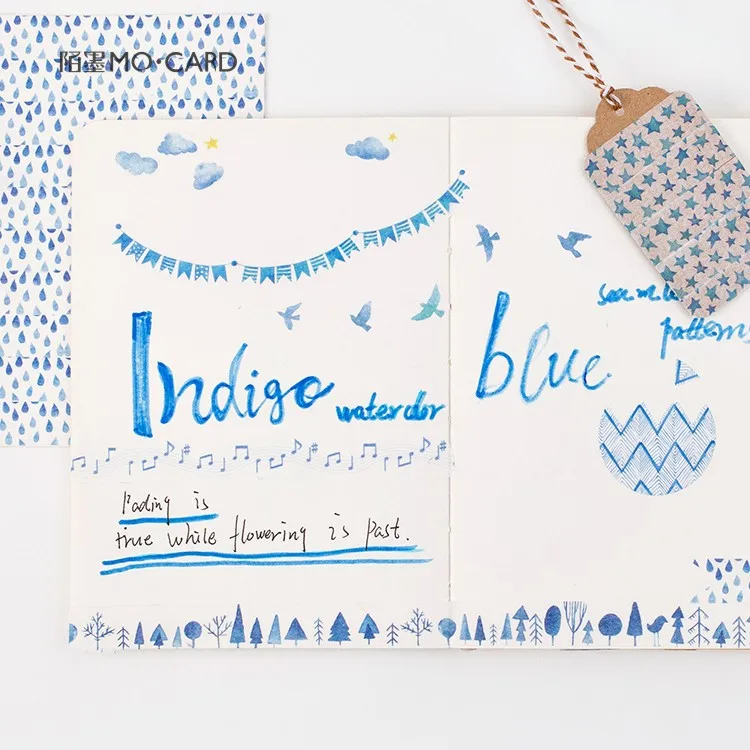 陌墨MO·CARD
Indigo
watercolor
blue
patterns
Fading is
true while flowering is past.